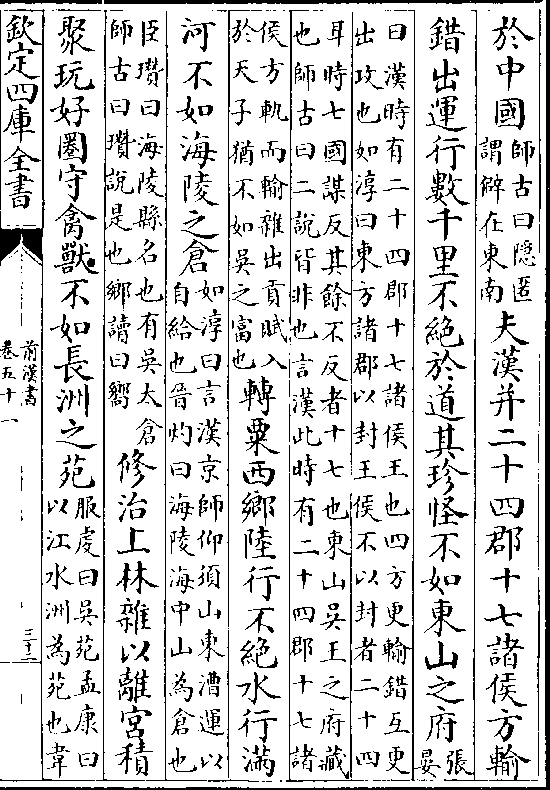 於中國師古曰隐匿
謂僻在東南夫漢并二十四郡十七諸侯方輸
錯出運行數千里不絶於道其珍怪不如東山之府張
晏
曰漢時有二十四郡十七諸侯王也四方更輸錯互更
出攻也如淳曰東方諸郡以封王侯不以封者二十四
耳時七國謀反其餘不反者十七也東山吳王之府藏
也師古曰二說皆非也言漢此時有二十四郡十七諸
侯方軌而輸雜出貢賦入
於天子猶不如吳之富也轉粟西鄉陸行不絶水行滿
河不如海陵之倉如淳曰言漢京師仰須山東漕運以
自給也晉灼曰海陵海中山為倉也
臣瓚曰海陵縣名也有吳太倉
師古曰瓚說是也鄉讀曰嚮修治上林雜以離宮積
聚玩好圈守禽獸不如長洲之苑服虔曰吳苑孟康曰
以江水洲為苑也韋
欽定四庫全書
前漢書
卷五十一
三十二